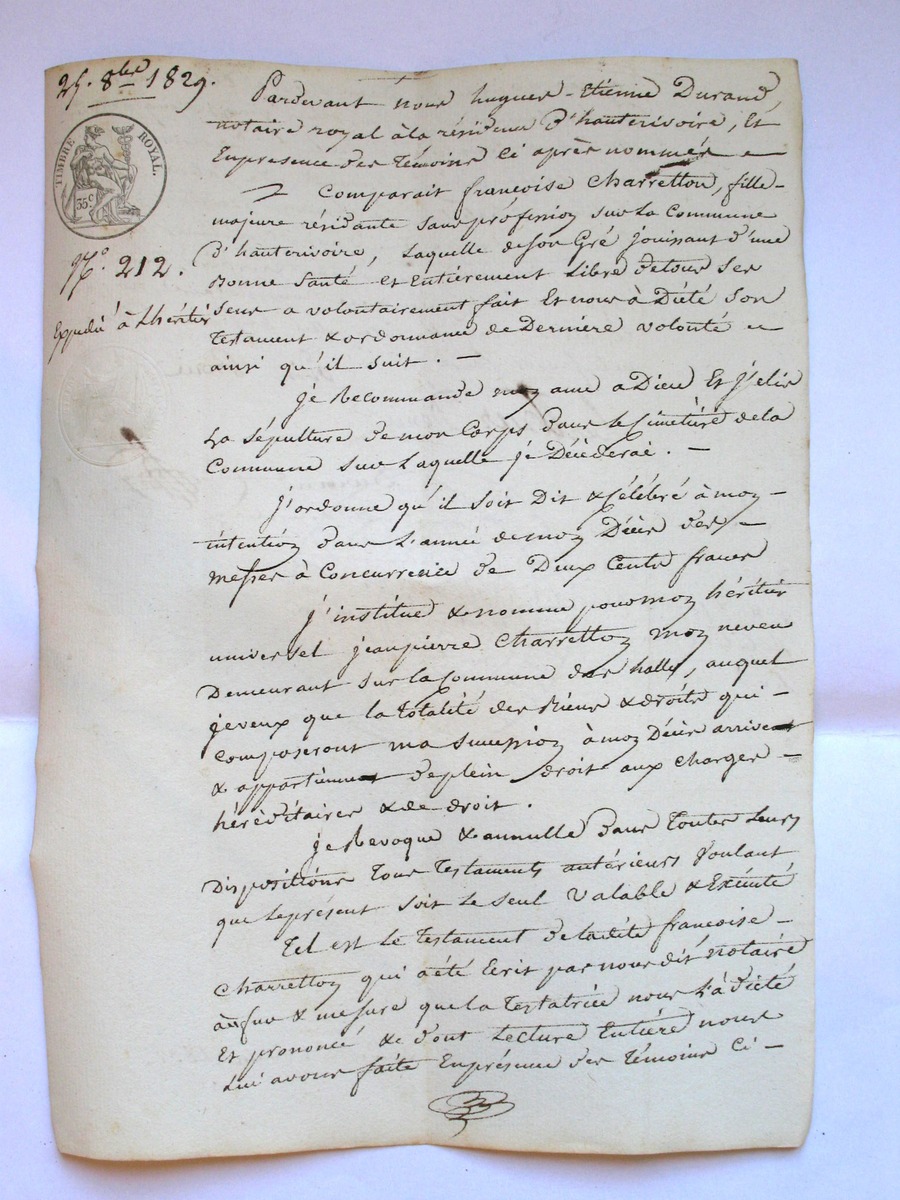 25. 8bre 1829.
TIMBRE ROYAL.
35c
No 212.
Expédié à Lhéritier
Pardevant nous hugues-Etienne Durand,
notaire royal à la résidence d'hauterivoire, Et
Enpresence des témoins ci après nommés
Comparait françoise Charretton, fille
majeure résidante sans profession sur la Commune
d'hauterivoire, Laquelle de son Gré jouissant d'une
Bonne Santé et Entièrement Libre de tous ses
sens a volontairement fait Et nous à Dicté son
Testament & ordonnance de Dernière volonté
ainsi qu'il suit. —
Je Recommande mon ame a Dieu Et J'elis
La Sépulture de mon Corps dans le Cimetière de la
Commune sur Laquelle je Décèderai. —
J'ordonne qu'il soit Dit & Célébré à mon
intention dans L'année de mon Décès des
messes à Concurrence de Deux Cents francs
J'institue & nomme pour mon héritier
universel jeanpierre Charretton mon neveu
Demeurant sur la Commune des halles, auquel
je veux que la totalité des Biens & droits qui
composeront ma succession à mon Décès arrivent
& appartiennent de plein droit aux charges
héréditaires & de droit.
Je Revoque & annulle dans toutes Leurs
Dispositions tous testaments antérieurs voulant
que le présent soit le seul valable & Exécuté
Tel est le testament de ladite françoise
Charretton qui a été Ecrit par nous dit notaire
au fur & mesure que la testatrice nous L'à dicté
Et prononcé & dont Lecture Entière nous
Lui avons faite Enprésence des témoins Ci —